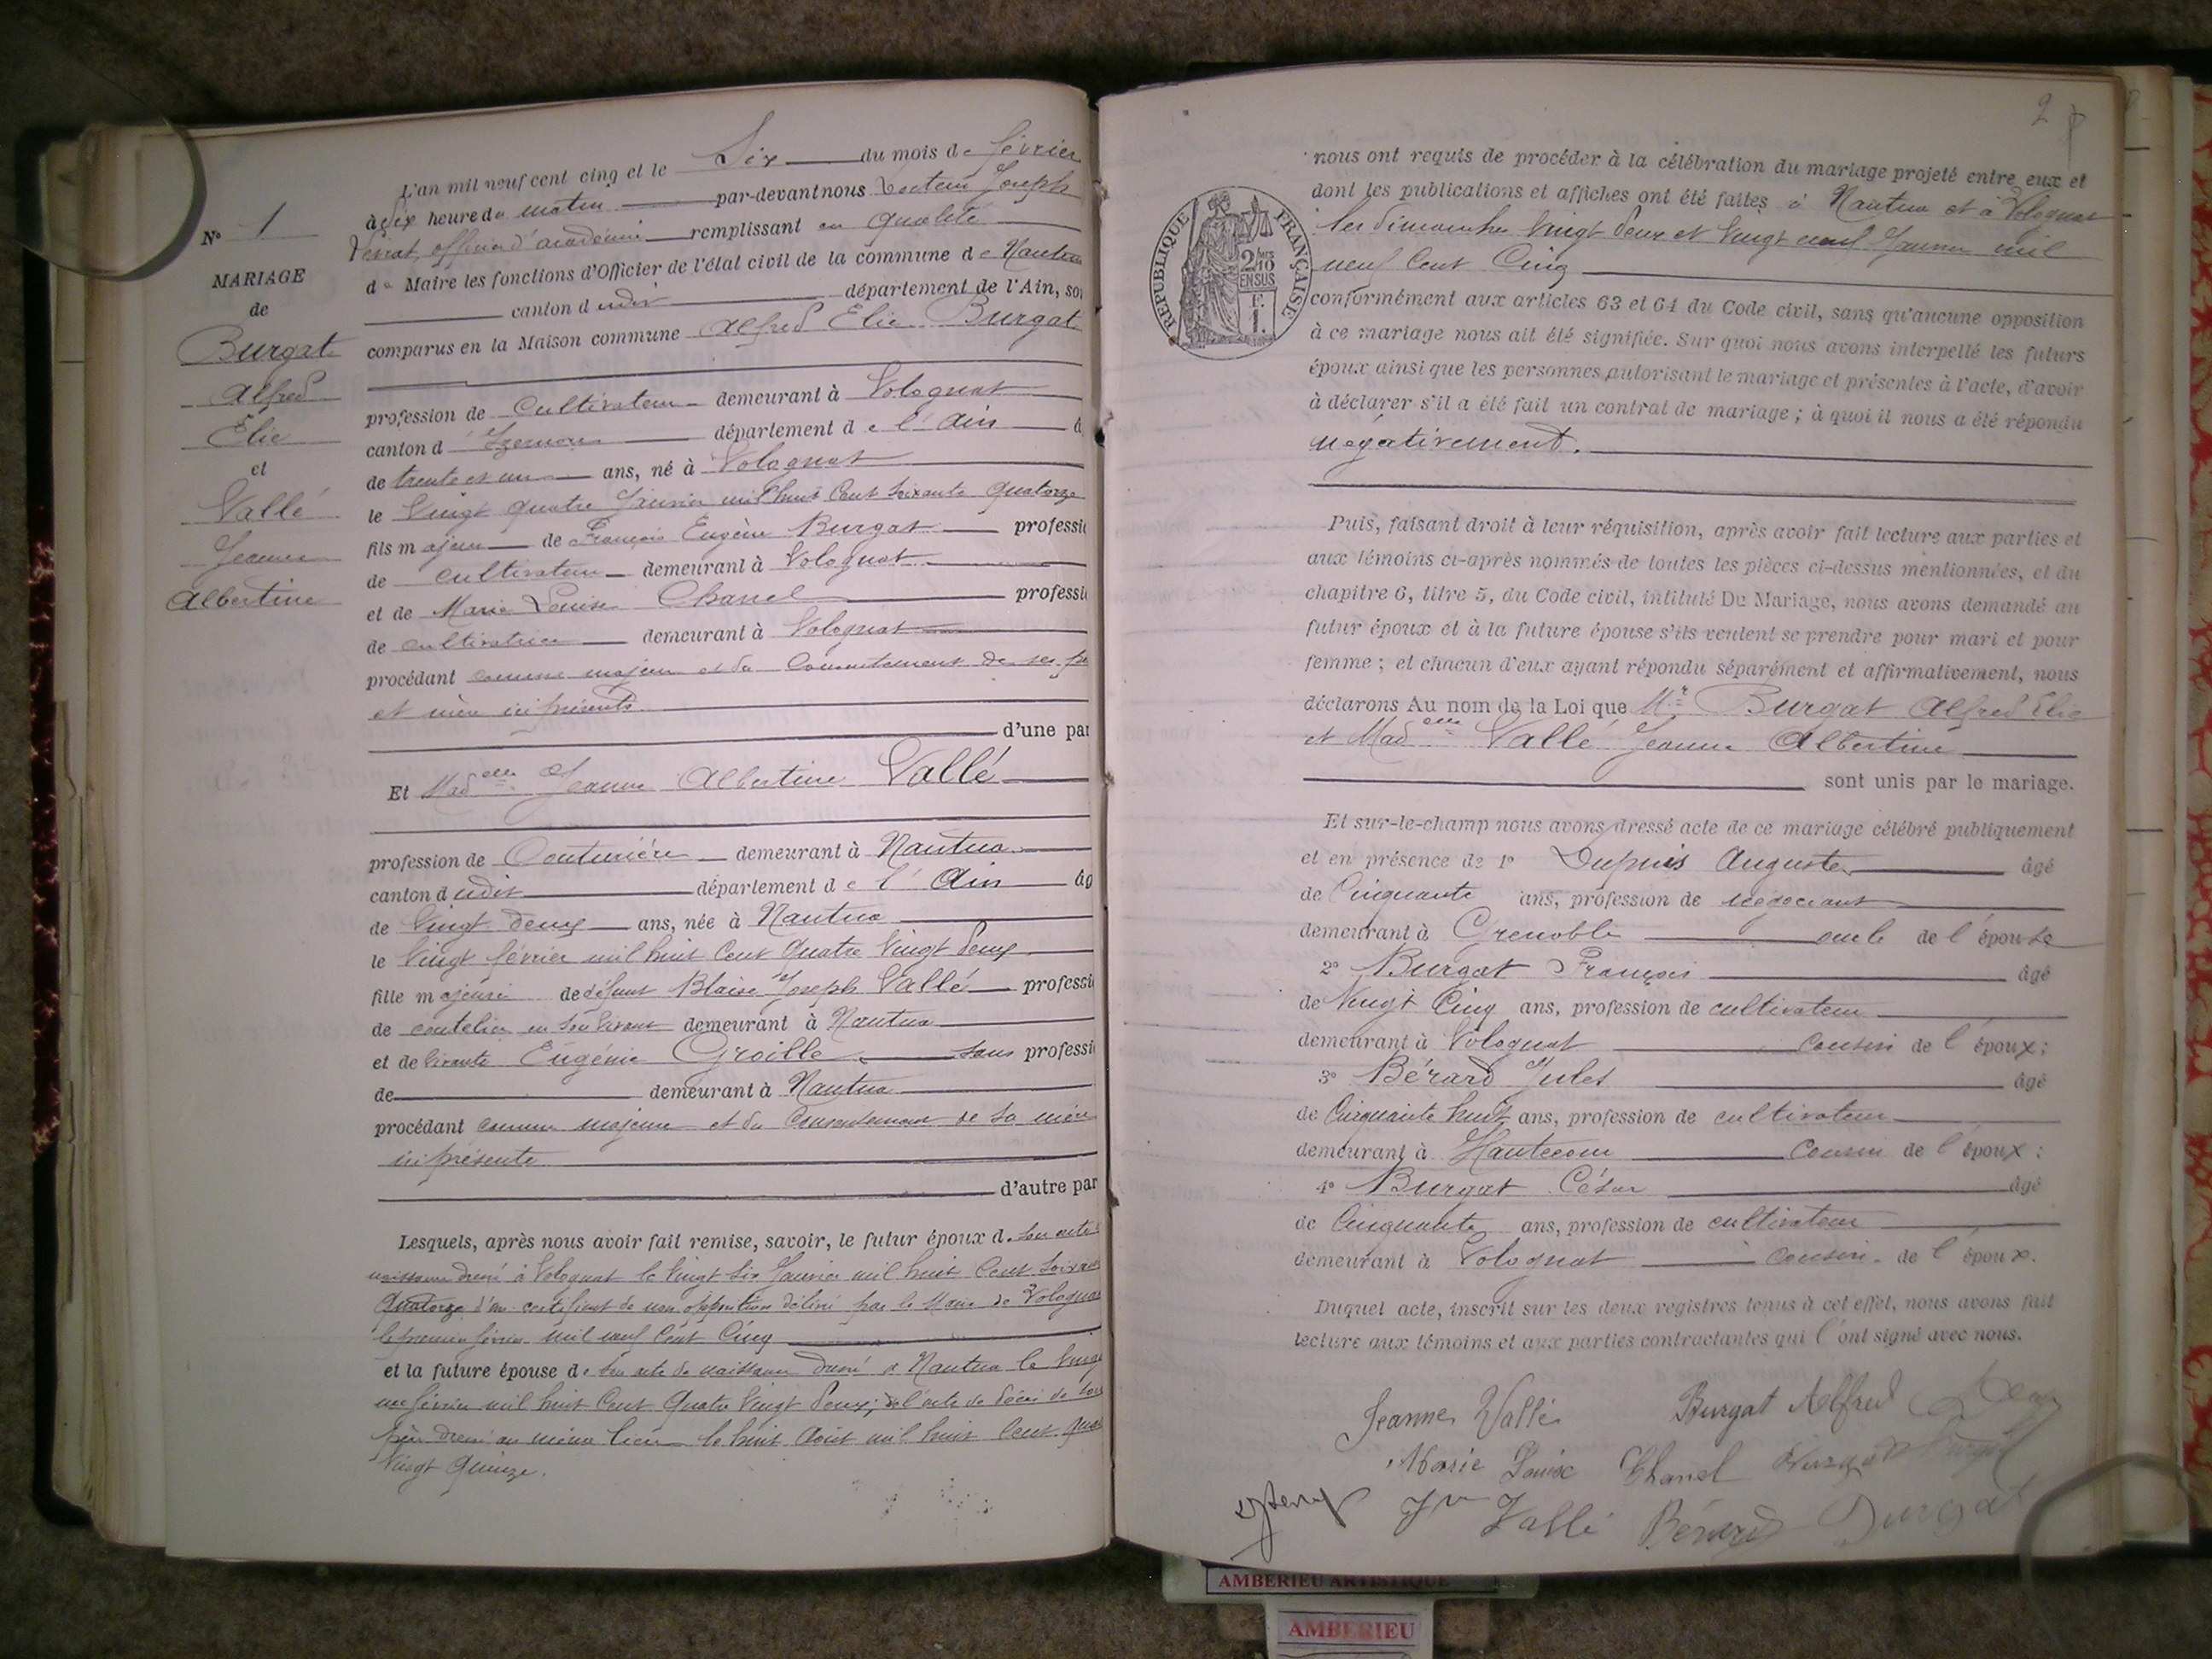 N° 1
MARIAGE
de
Burgat
Alfred
Elie
et
Vallé
Jeanne
Albertine
L'an mil neuf cent cinq et le Six du mois de février
à dix heure du matin par-devant nous Docteur Joseph
officier d'académie remplissant en qualité
de Maire les fonctions d'Officier de l'état civil de la commune de Nantua
canton dudit département de l'Ain, son
comparus en la Maison commune Alfred Elie Burgat
profession de Cultivateur demeurant à Volognat
canton d'Izernore département de l'Ain â
de trente et un ans, né à Volognat
le vingt quatre Janvier mil huit Cent soixante quatorze
fils majeur de François Eugène Burgat professi
de cultivateur demeurant à Volognat
et de Marie Louise Chanel professi
de cultivatrice demeurant à Volognat
procédant comme majeur et du Consentement de ses pè
et mère ici présents
d'une par
Et Madelle Jeanne Albertine Vallé
profession de Couturière demeurant à Nantua
canton dudit département de l'Ain âg
de vingt deux ans, née à Nantua
le vingt février mil huit Cent quatre vingt deux
fille majeure de défunt Blaise Joseph Vallé professi
de coutelier en son vivant demeurant à Nantua
et de vivante Eugénie Groille sans professi
de demeurant à Nantua
procédant comme majeure et du Consentement de sa mère
ici présente
d'autre par
Lesquels, après nous avoir fait remise, savoir, le futur époux de son acte
naissance dressé à Volognat le vingt six Janvier mil huit Cent soixante
quatorze d'un certificat de non opposition délivré par le Maire de Volognat
le premier février mil neuf Cent Cinq
et la future épouse de son acte de naissance dressé à Nantua le vingt
un février mil huit Cent quatre vingt deux; de l'acte de décès de son
père dressé au même lieu le huit Août mil huit Cent qua
vingt quinze.
2
nous ont requis de procéder à la célébration du mariage projeté entre eux et
dont les publications et affiches ont été faites à Nantua et à Volognat
les dimanches vingt deux et vingt neuf Janvier mil
neuf Cent Cinq
conformément aux articles 63 et 64 du Code civil, sans qu'aucune opposition
à ce mariage nous ait été signifiée. Sur quoi nous avons interpellé les futurs
époux ainsi que les personnes autorisant le mariage et présentes à l'acte, d'avoir
à déclarer s'il a été fait un contrat de mariage ; à quoi il nous a été répondu
négativement.
REPUBLIQUE FRANÇAISE
2/10 EN SUS
F.
1.
Puis, faisant droit à leur réquisition, après avoir fait lecture aux parties et
aux témoins ci-après nommés de toutes les pièces ci-dessus mentionnées, et du
chapitre 6, titre 5, du Code civil, intitulé Du Mariage, nous avons demandé au
futur époux et à la future épouse s'ils veulent se prendre pour mari et pour
femme ; et chacun d'eux ayant répondu séparément et affirmativement, nous
déclarons Au nom de la Loi que Mr Burgat Alfred Elie
et Madelle Vallé Jeanne Albertine
sont unis par le mariage.
Et sur-le-champ nous avons dressé acte de ce mariage célébré publiquement
et en présence de 1° Dupuis Auguste âgé
de Cinquante ans, profession de négociant
demeurant à Grenoble oncle de l'épouse
2° Burgat François âgé
de Vingt Cinq ans, profession de cultivateur
demeurant à Volognat Cousin de l'époux ;
3° Bérard Jules âgé
de Cinquante huit ans, profession de cultivateur
demeurant à Hautecour Cousin de l'époux ;
4° Burgat César âgé
de Cinquante ans, profession de cultivateur
demeurant à Volognat cousin de l'époux.
Duquel acte, inscrit sur les deux registres tenus à cet effet, nous avons fait
lecture aux témoins et aux parties contractantes qui l'ont signé avec nous.
Jeanne Vallé Burgat Alfred
Marie Louise Chanel
Vve Vallé Bérard Burgat
AMBERIEU ARTISTIQUE
AMBERIEU